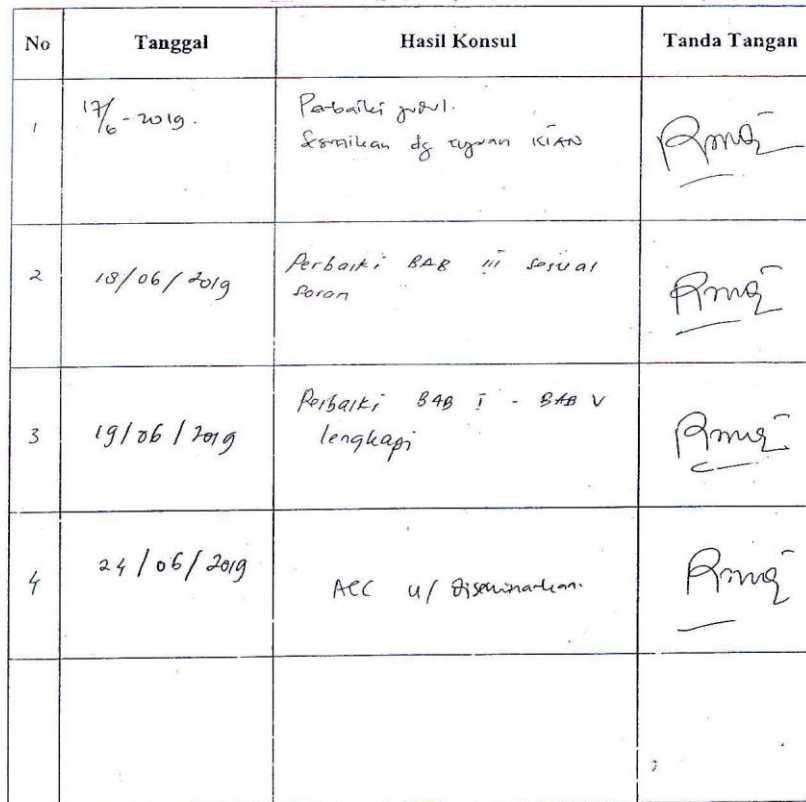 No Tanggal Hasil Konsul Tanda Tangan
1 17/6-2019. Perbaiki judul.
Sesuaikan dg tujuan KIAN
2 18/06/2019 Perbaiki BAB III sesuai
saran
3 19/06/2019 Perbaiki BAB I - BAB V
lengkapi
4 24/06/2019 ACC u/ diseminarkan.